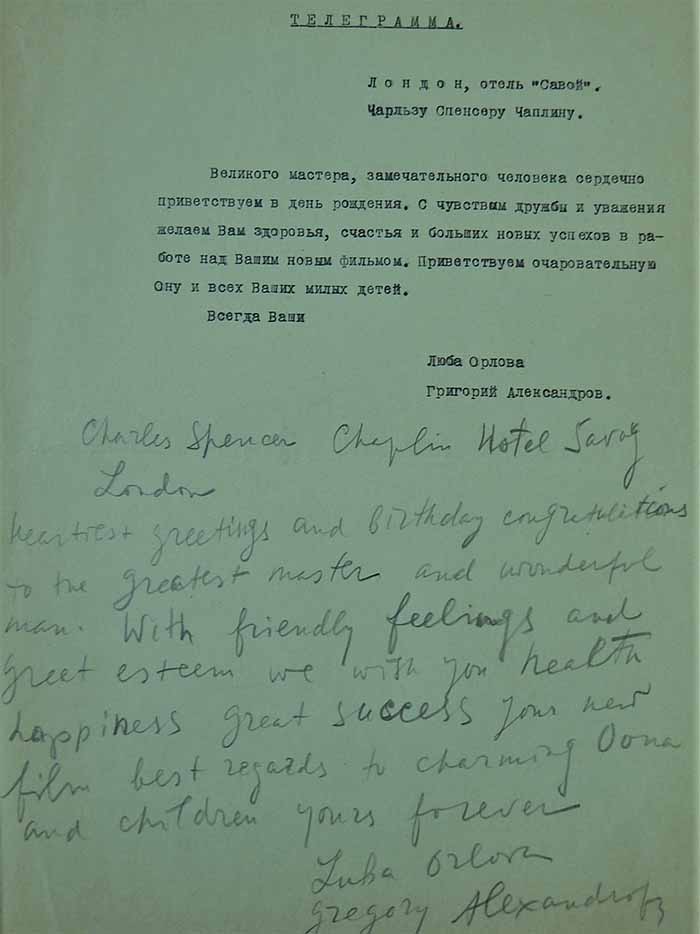 ТЕЛЕГРАММА.
Лондон, отель "Савой".
Чарльзу Спенсеру Чаплину.
Великого мастера, замечательного человека сердечно
приветствуем в день рождения. С чувством дружбы и уважения
желаем Вам здоровья, счастья и больших новых успехов в ра-
боте над Вашим новым фильмом. Приветствуем очаровательную
Ону и всех Ваших милых детей.
Всегда Ваши
Люба Орлова
Григорий Александров.
Charles Spencer Chaplin Hotel Savoy
London
heartiest greetings and birthday congratulations
to the greatest master and wonderful
man. With friendly feelings and
great esteem we wish you health
happiness great success your new
film best regards to charming Oona
and children yours forever
Luba Orlova
Gregory Alexandroff